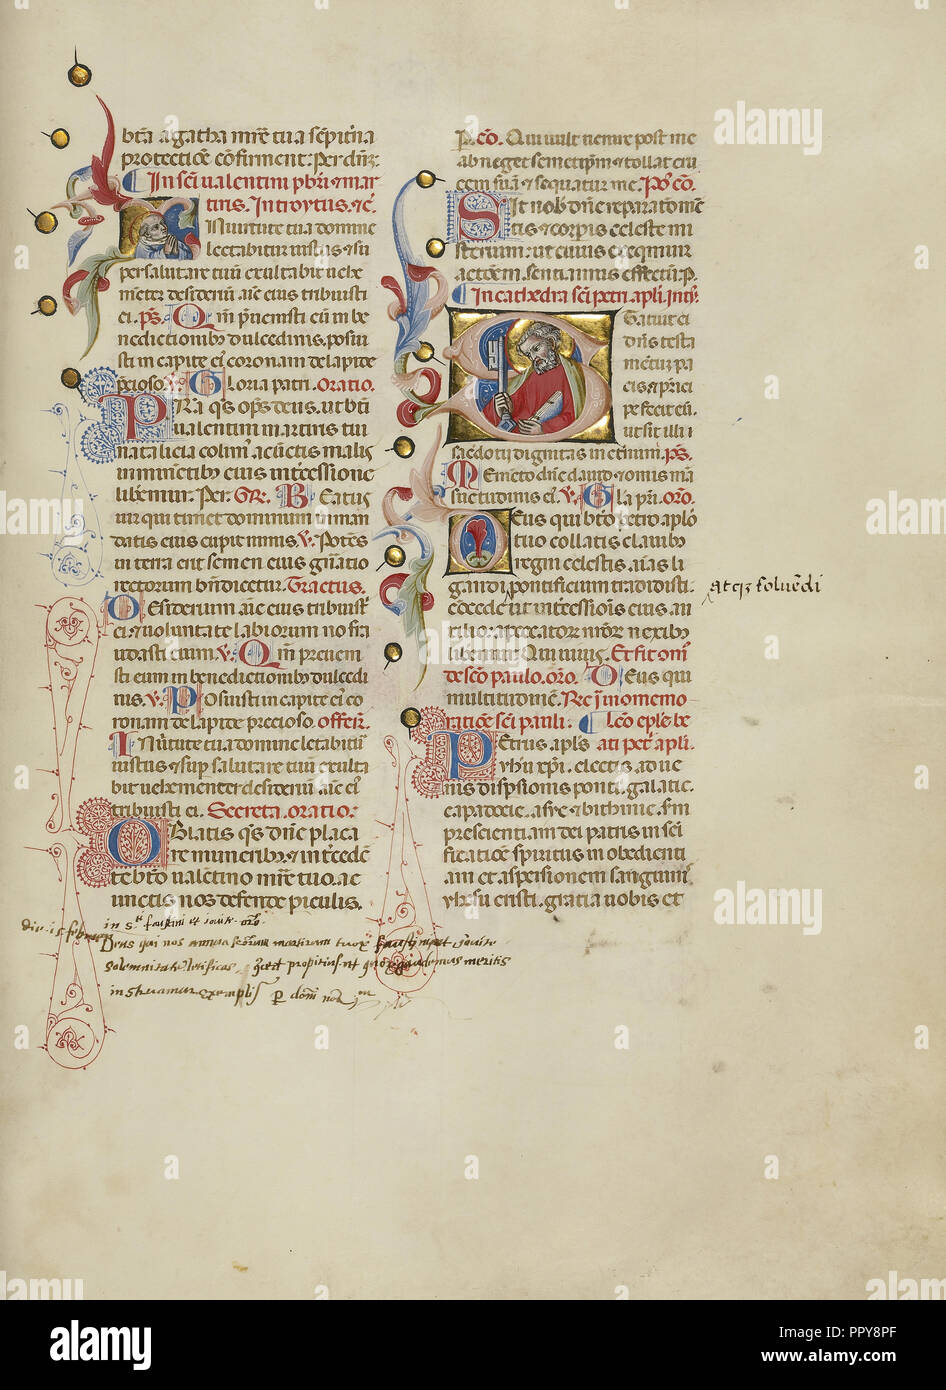 bt̄a agatha mr̄e tua sēpit̄na
protectiōe cōfirment: Per dn̄z:
In sc̄i ualentini pbr̄i & mar
tiris. Introytus. &c̄.
IN uirtute tua domine
letabitur iustus & su
per salutare tuū exultabit uehe
menter desideriū aīe eius tribuisti
ei. ps̄. Qm̄ pr̄uenisti eū in be
nedictionibꝫ dulcedinis. posui
sti in capite eī coronam de lapide
pr̄cioso. v̄. Gloria patri. Oratio.
PRa qs̄ op̄s deus. ut bt̄i
ualentini martiris tui
natalicia colim̄. a cūctis malis
imminētibꝫ eius intercessione
liberemur. Per. Gr̄. Beatus
uir qui timet dominum in man
datis eius cupit nimis. v̄. Potēs
in terra erit semen eius gn̄atio
rectorum bn̄dicetur. Tractus.
DEsiderium aīe eius tribuisti
ei. & uoluntate labiorum non fra
udasti eum. v̄. Qm̄ preueni
sti eum in benedictionibꝫ dulcedi
nis. v̄. Posuisti in capite eī co
ronam de lapide precioso. offer̄.
IN uirtute tua domine letabitur
iustus & sup̄ salutare tuū exulta
bit uehementer desideriū aīe eī
tribuisti ei. Secreta. oratio.
OBlatis qs̄ dn̄e placa
re muneribꝫ & int̄cedēte
te bt̄o ualētino mr̄e tuo. a c
unctis nos defende piculis.
die. 15 febru
in S.ti faustini et iouite. orō.
Deus qui nos annua sanctorum martirum tuorum faustini et Jouite
solemnitate letificas. c̄cede propitius. ut quorum gaudemus meritis
instruamur exemplis p domī nr̄m
P. cō. Qui uult uenire post me
abneget semetip̄m & tollat cru
cem suā & sequatur me. Po. cō.
Sit nob̄ dn̄e reparatio mē
tis & corporis celeste mi
sterium: ut cuius exequimur
actōem. sentiamus effectū. P.
In cathedra sc̄i petri apl̄i. Int̄.
Statuit ei
dn̄s testa
mētuꝫ pa
cis & pr̄ici
pē fecit eū.
ut sit illi i
sacerdotij dignitas in eternum. ps̄.
Memēto dn̄e dauid & omīs mā
suetudinis eī. v̄. Gla pr̄i. orō.
DEus qui bt̄o petro aplō
tuo collatis clauibꝫ
regni celestis. aīas li
gandi pontificium tradidisti.
cōcede ut intercessiōis eius au
xilio: a peccatorꝫ nr̄orꝫ nexibꝫ
liberemur. Qui uiuis. Et fit om̄i
de sc̄o paulo. orō. Deus qui
multitudinē. Re. j no memo
ratiōe sc̄i pauli. Leō epl̄e be
Petrus apl̄s ati petri apli.
yhu xp̄i. electis adue
nis dispsionis ponti. galatie.
capadocie. asye & bithinie. sm̄
prescientiam dei patris in sc̄i
ficatiōe spiritus in obedienti
am et aspersionem sanguinis
yhu cristi. gratia uobis et
atqꝫ soluēdi
alamy
Image ID: PPY8PF
www.alamy.com